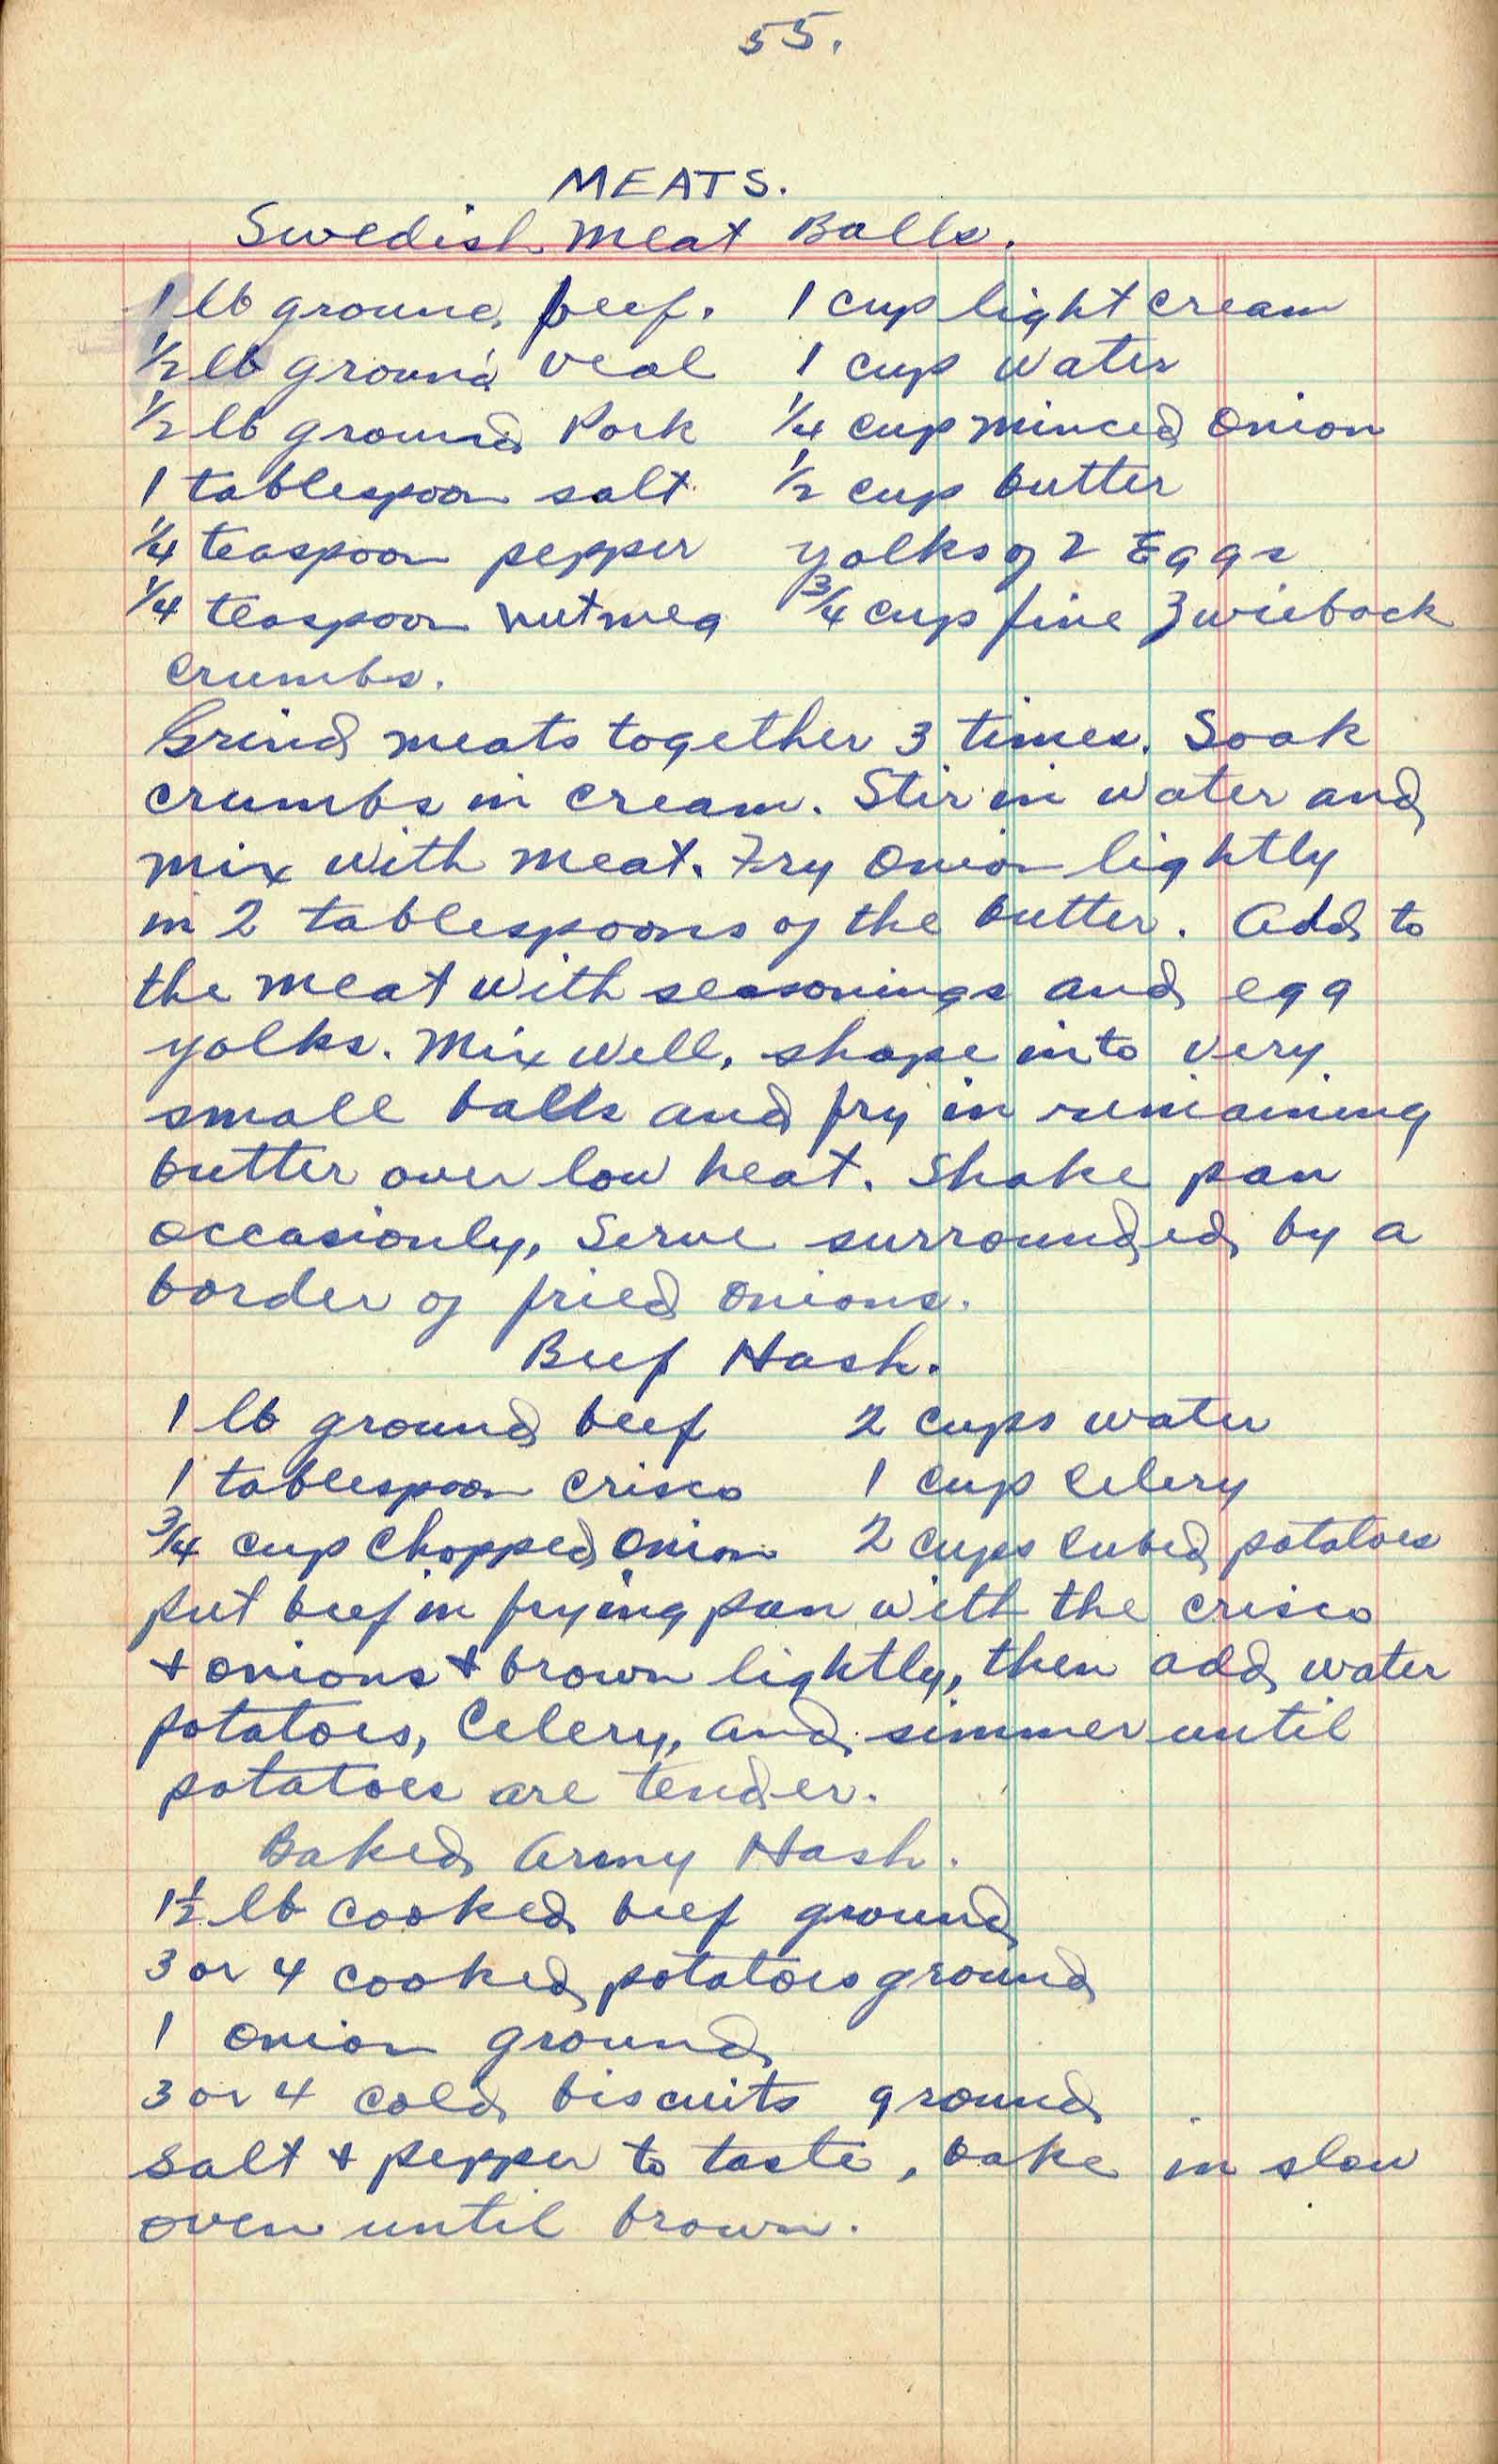 55.
MEATS.
Swedish Meat Balls.
1 lb ground beef. 1 cup light cream
1/2 lb ground veal 1 cup water
1/2 lb ground Pork 1/4 cup minced onion
1 tablespoon salt 1/2 cup butter
1/4 teaspoon pepper yolks of 2 Eggs
1/4 teaspoon nutmeg 3/4 cup fine Zwieback
crumbs.
Grind meats together 3 times. Soak
crumbs in cream. Stir in water and
mix with meat. Fry onion lightly
in 2 tablespoons of the butter. Add to
the meat with seasonings and egg
yolks. Mix well, shape into very
small balls and fry in remaining
butter over low heat. Shake pan
occasionly, Serve surrounded by a
border of fried onions.
Beef Hash.
1 lb ground beef 2 cups water
1 tablespoon crisco 1 cup celery
3/4 cup chopped onion 2 cups cubed potatoes
put beef in frying pan with the crisco
+ onions + brown lightly, then add water
potatoes, Celery, and simmer until
potatoes are tender.
Baked Army Hash.
1 1/2 lb cooked beef ground
3 or 4 cooked potatoes ground
1 onion ground
3 or 4 cold biscuits ground
salt + pepper to taste, bake in slow
oven until brown.